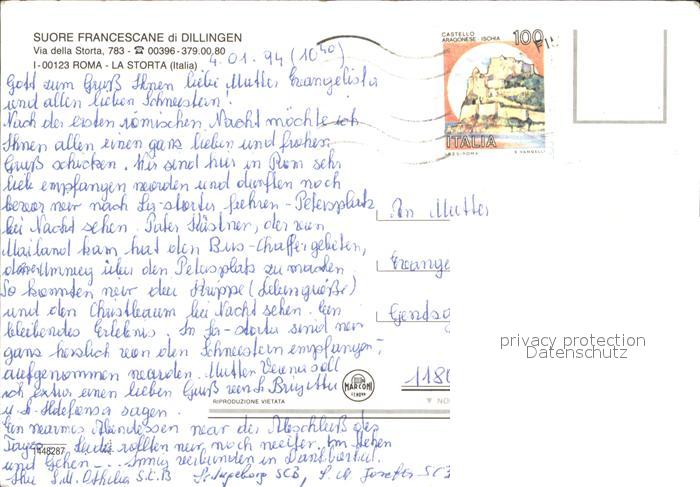 SUORE FRANCESCANE di DILLINGEN
Via della Storta, 783 - ☎ 00396-379.00.80
I - 00123 ROMA - LA STORTA (Italia)
4.01.94 (10⁴⁰)
Gott zum Gruß Ihnen liebe Mutter Evangelista
und allen lieben Schwestern!
Nach der ersten römischen Nacht möchte ich
Ihnen allen einen ganz lieben und frohen
Gruß schicken. Wir sind hier in Rom sehr
lieb empfangen worden und durften noch
bevor wir nach La-storta fuhren - Petersplatz
bei Nacht sehen. Pater Küstner, der von
Mailand kam hat den Bus-Chaffer gebeten,
den Umweg über den Petersplatz zu machen
So konnten wir die Krippe (Lebensgröße)
und den Christbaum bei Nacht sehen. Ein
bleibendes Erlebnis. In La-storta sind wir
ganz herzlich von den Schwestern empfangen,
aufgenommen worden. Mutter Verena soll
ich extra einen lieben Gruß von S. Brigitta
u. S. Ildefonsa sagen.
Ein warmes Abendessen war der Abschluß des
Tages. Heute sollten wir noch weiter. Im Stehen
und Gehen - ... innig verbunden in Dankbarkeit.
Ihre S.M. Othilia S.C.B S. Ingeborg SCB, S. M. Josefa SCB
CASTELLO
ARAGONESE - ISCHIA
100
ITALIA
I.P.Z.S. ROMA
E. VANGELLI
An Mutter
Evange
118
MARCONI
GENOVA
RIPRODUZIONE VIETATA
▼ NO
1448287
privacy protection
Datenschutz